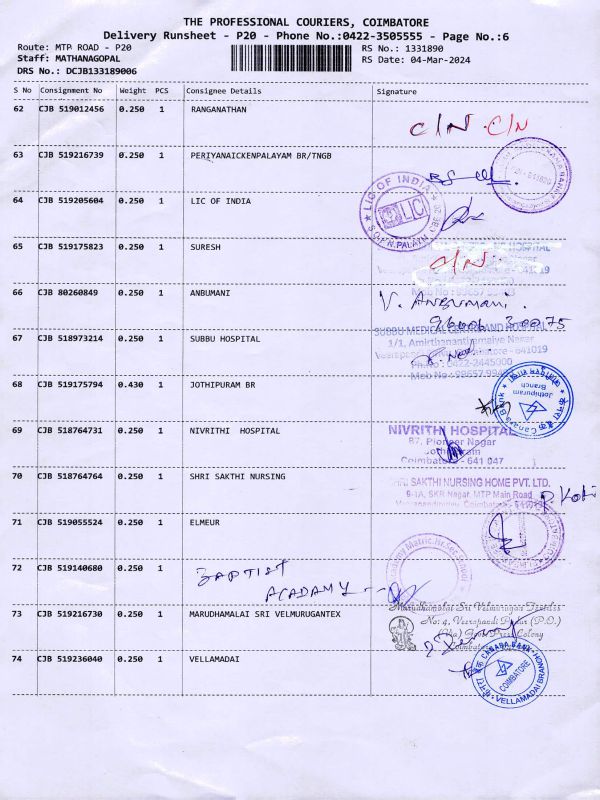 THE PROFESSIONAL COURIERS, COIMBATORE
Delivery Runsheet - P20 - Phone No.:0422-3505555 - Page No.:6
Route: MTP ROAD - P20
RS No.: 1331890
Staff: MATHANAGOPAL
RS Date: 04-Mar-2024
DRS No.: DCJB133189006
S No Consignment No Weight PCS Consignee Details Signature
62 CJB 519012456 0.250 1 RANGANATHAN
C/N C/N
63 CJB 519216739 0.250 1 PERIYANAICKENPALAYAM BR/TNGB
64 CJB 519205604 0.250 1 LIC OF INDIA
LIC OF INDIA
LIC
65 CJB 519175823 0.250 1 SURESH
C/N
66 CJB 80260849 0.250 1 ANBUMANI
V. Anbumani.
67 CJB 518973214 0.250 1 SUBBU HOSPITAL
SUBBU MEDICAL CENTRE AND HOSPITAL
1/1, Amirthananthamaiye Nagar
Phone : 0422-2445000
68 CJB 519175794 0.430 1 JOTHIPURAM BR
Canara Bank
Jothipuram
Branch
69 CJB 518764731 0.250 1 NIVRITHI HOSPITAL
NIVRITHI HOSPITAL
87, Pioneer Nagar
Coimbatore - 641 047
70 CJB 518764764 0.250 1 SHRI SAKTHI NURSING
SHRI SAKTHI NURSING HOME PVT. LTD.
9-1A, SKR Nagar, MTP Main Road
71 CJB 519055524 0.250 1 ELMEUR
72 CJB 519140680 0.250 1
BAPTIST
ACADAMY
73 CJB 519216730 0.250 1 MARUDHAMALAI SRI VELMURUGANTEX
Marudhamalai Sri Velmurugan Textiles
No: 4, Veerapandi Pudur (P.O.)
74 CJB 519236040 0.250 1 VELLAMADAI
CANARA BANK
COIMBATORE
VELLAMADAI BRANCH